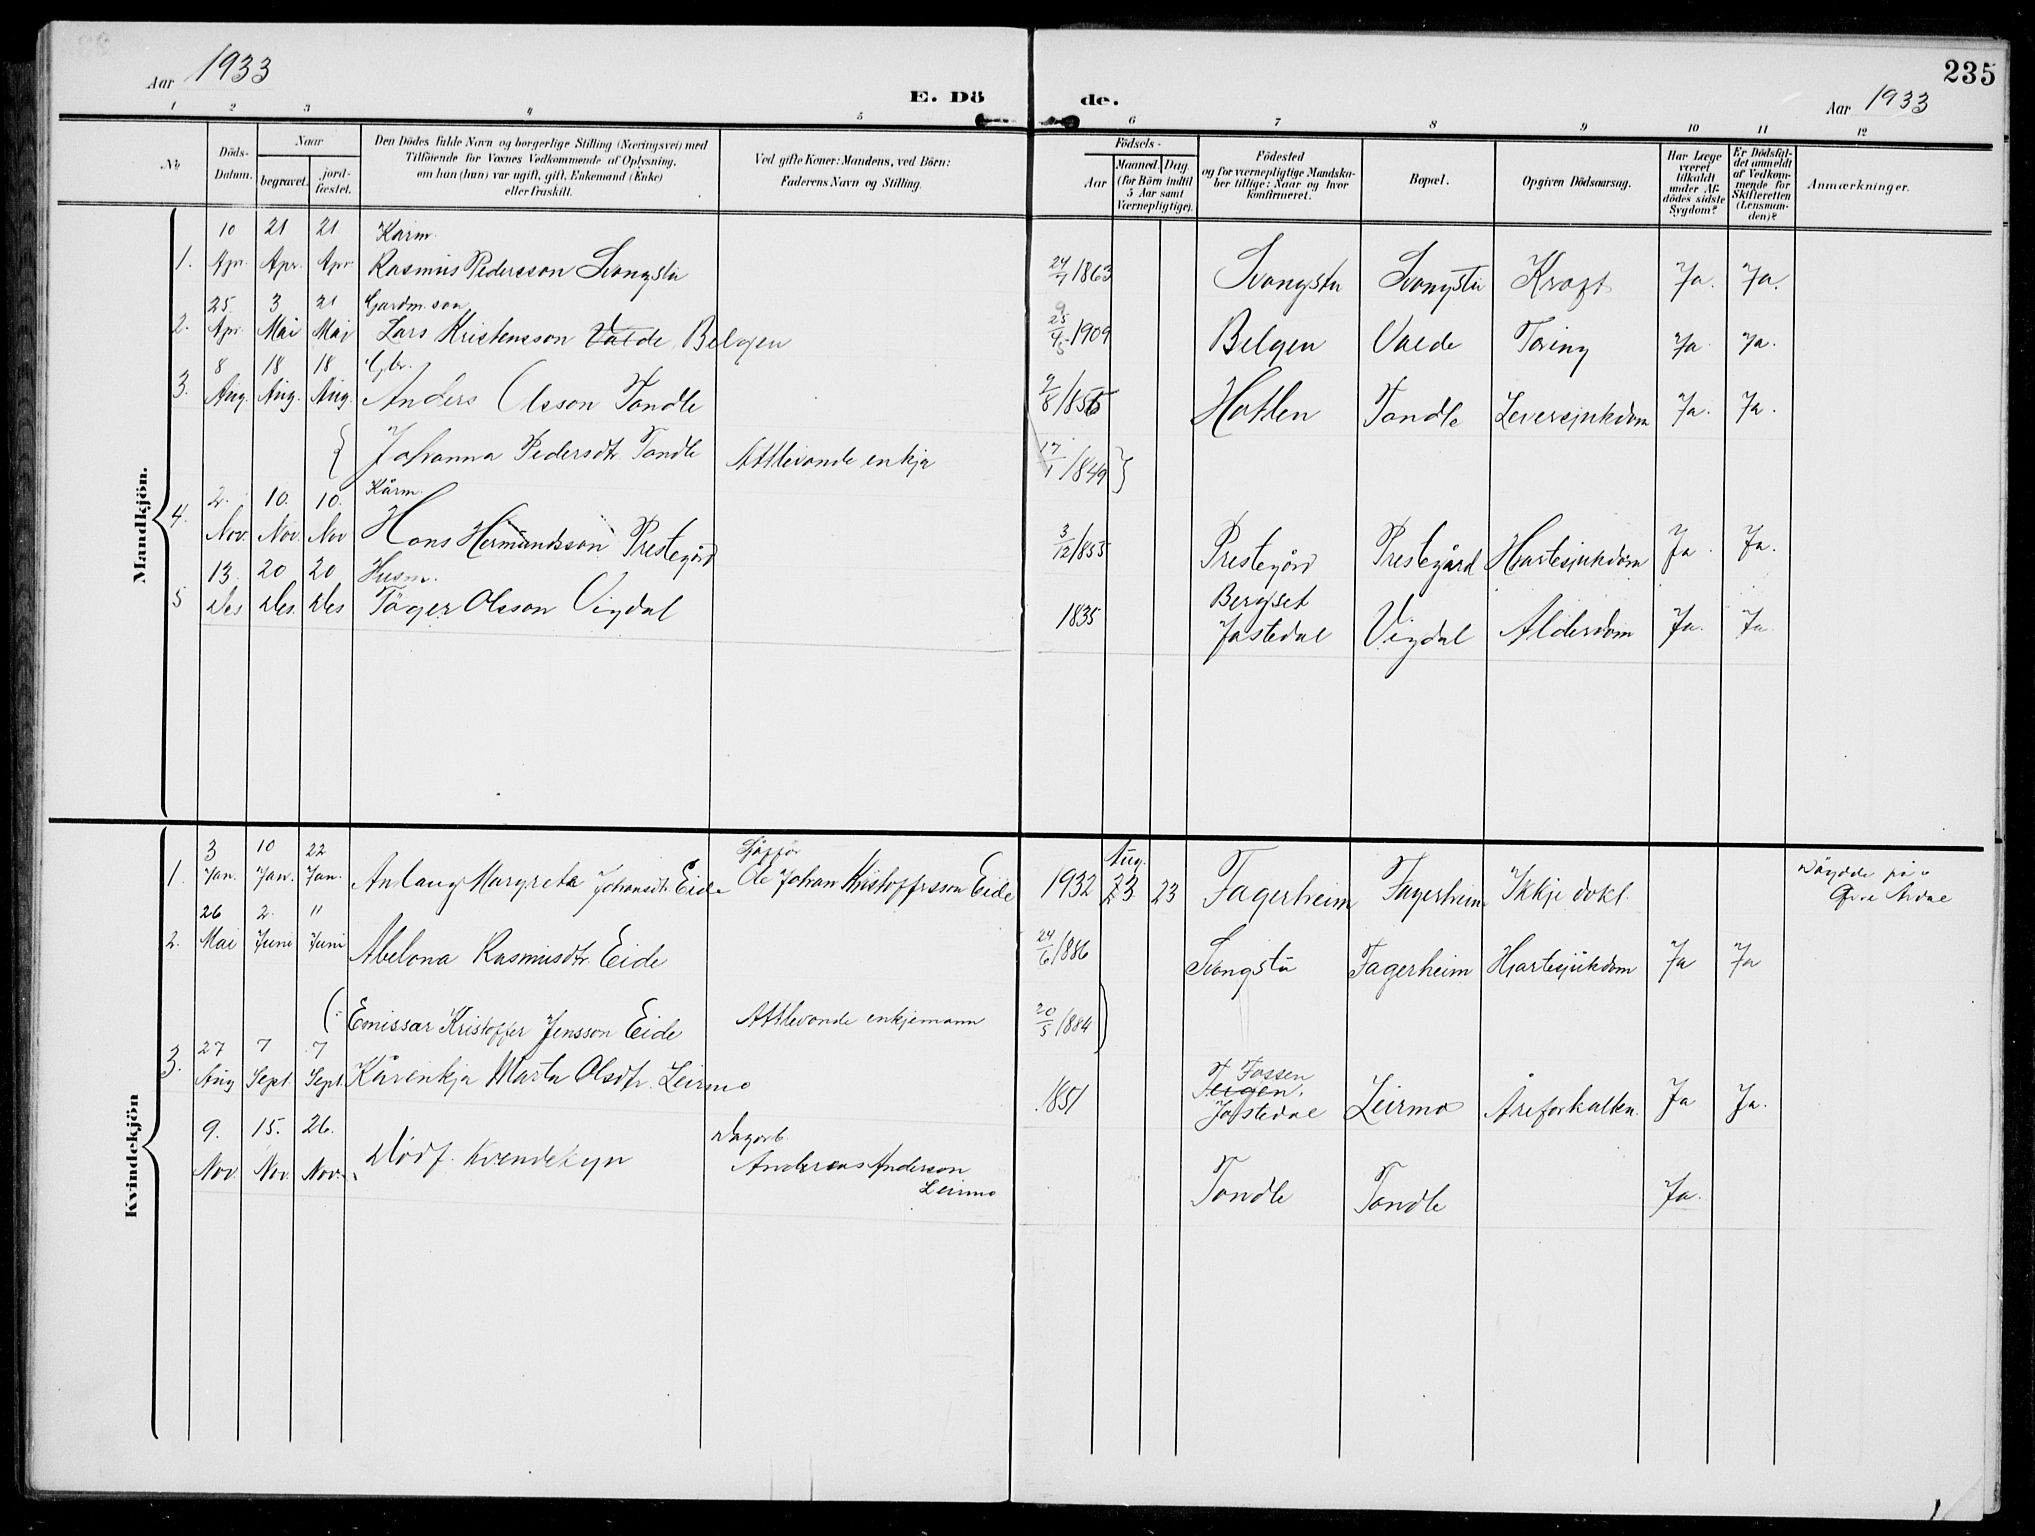 235
Aar 1933
E. Dö
de.
Aar 1933
1 2 3 4 5 6 7 8 9 10 11 12
№
Döds-
Datum.
Naar
begravet.
jord-
fæstet.
Den Dödes fulde Navn og borgerlige Stilling (Næringsvei) med
Tilföiende for Voxnes Vedkommende af Oplysning,
om han (hun) var ugift, gift, Enkemand (Enke)
eller fraskilt.
Ved gifte Koner: Mandens, ved Börn:
Faderens Navn og Stilling.
Födsels-
Aar
Maaned.
Dag.
(for Börn indtil
5 Aar samt
Værnepligtige).
Födested
og for værnepligtige Mandska-
ber tillige: Naar og hvor
konfirmeret.
Bopæl.
Opgiven Dödsaarsag.
Har Læge
været
tilkaldt
under Af-
dödes sidste
Sygdom?
Er Dödsfal-
det anmeldt
af Vedkom-
mende for
Skifteretten
(Lensman-
den)?
Anmærkninger.
Mandkjön.
10 21 21 Kårm.
1. Apr. Apr. Apr Rasmus Pedersson Svangstu 24/7 1863 Svangstu Svangstu Kraft Ja. Ja.
25 3 21 Gardm. son
2. Apr. Mai Mai Lars Kristensson Valde Belgen 25/4 1909 Belgen Valde Tæring Ja. Ja.
8 18 18 Gbr.
3. Aug. Aug. Aug. Anders Olsson Tandle 9/8 1855 Hatlen Tandle Leversjukdom Ja. Ja.
{ Johanna Pedersdtr. Tandle Attlevande enkja 17/1 1849 }
2. 10. 10. Kårm.
4. Nov. Nov. Nov Hans Hermundsson Prestegård 3/12 1855 Prestegård Prestegård Hjartesjukdom Ja. Ja.
13. 20 20 Husm. Bergset
5 Des Des. Des Tøger Olsson Vigdal 1835 Jostedal Vigdal Alderdom Ja. Ja.
Kvindekjön
3 10 22 Sjåfför Aug.
1. Jan. Jan. Jan. Anlaug Margreta Johansdtr. Eide Ole Johan Kristoffersson Eide 1932 23 23 Fagerheim Fagerheim Ikkje dokt. Døydde på
Øvre Årdal
26 2. 11
2. Mai Juni Juni Abelona Rasmusdtr. Eide 24/6 1886 Svangstu Fagerheim Hjartesjukdom Ja Ja
(: Emissær Kristoffer Jensson Eide Attlevande enkjemann 20/5 1884 )
27 7 7 Fossen
3. Aug Sept Sept. Kårenkja Marta Olsdtr. Leirmo 1851 Teigen, Jostedal Leirmo Åreforkalken. Ja Ja.
9. 15. 26. Dagarb.
Nov Nov. Nov. Dødf. kvendekyn Andreas Anderson
Leirmo Tandle Tandle Ja.